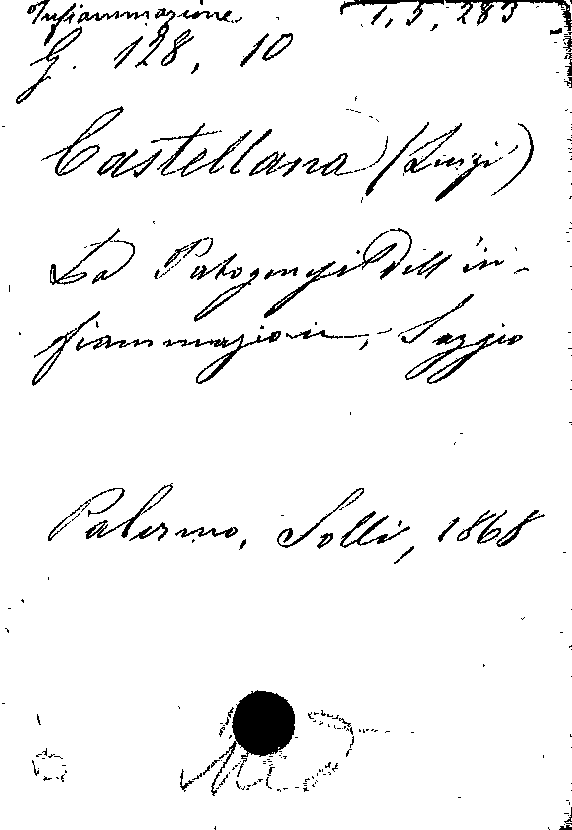 Infiammazione 1, 5, 283
G. 128, 10
Castellana (Luigi)
La Patogenesi dell'in-
fiammazione, Saggio
Palermo, Solli, 1868